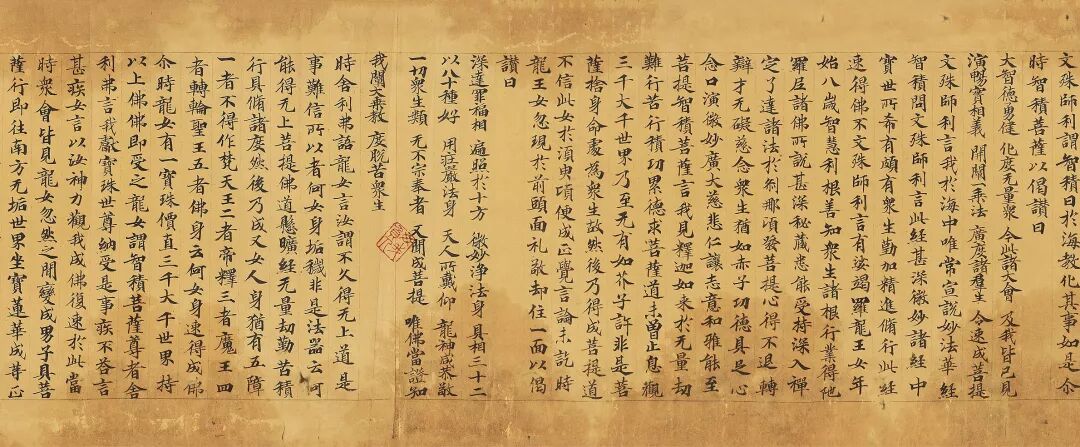 文殊師利謂智積曰於海教化其事如是尒
時智積菩薩以偈讃曰
大智德勇健 化度无量衆 今此諸大會 及我皆已見
演暢實相義 開闡一乘法 廣度諸羣生 令速成菩提
文殊師利言我於海中唯常宣說妙法華經
智積問文殊師利言此經甚深微妙諸經中
寶世所希有頗有衆生勤加精進脩行此經
速得佛不文殊師利言有娑竭羅龍王女年
始八歲智慧利根善知衆生諸根行業得陁
羅尼諸佛所說甚深秘藏悉能受持深入禪
定了達諸法於剎那頃發菩提心得不退轉
辯才无礙慈念衆生猶如赤子功德具足心
念口演微妙廣大慈悲仁讓志意和雅能至
菩提智積菩薩言我見釋迦如來於无量劫
難行苦行積功累德求菩薩道未曾止息觀
三千大千世界乃至无有如芥子許非是菩
薩捨身命處為衆生故然後乃得成菩提道
不信此女於須臾頃便成正覺言論未訖時
龍王女忽現於前頭面礼敬却住一面以偈
讃曰
深達罪福相 遍照於十方 微妙淨法身 具相三十二
以八十種好 用莊嚴法身 天人所戴仰 龍神咸恭敬
一切衆生類 无不宗奉者 又聞成菩提 唯佛當證知
我闡大乘教 度脫苦衆生
時舍利弗語龍女言汝謂不久得无上道是
事難信所以者何女身垢穢非是法器云何
能得无上菩提佛道懸曠經无量劫勤苦積
行具脩諸度然後乃成又女人身猶有五障
一者不得作梵天王二者帝釋三者魔王四
者轉輪聖王五者佛身云何女身速得成佛
尒時龍女有一寶珠價直三千大千世界持
以上佛佛即受之龍女謂智積菩薩尊者舍
利弗言我獻寶珠世尊納受是事疾不荅言
甚疾女言以汝神力觀我成佛復速於此當
時衆會皆見龍女忽然之間變成男子具菩
薩行即往南方无垢世界坐寶蓮華成等正